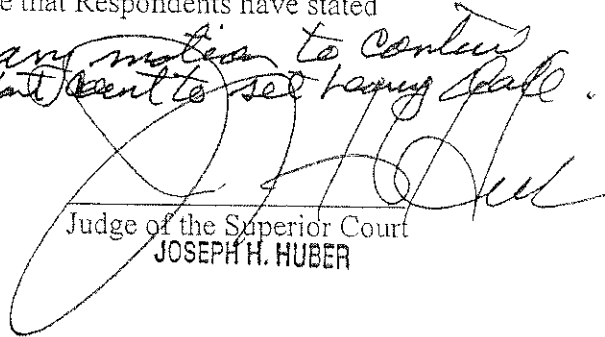 e that Respondents have stated
any motion to
to set hearing date.
Judge of the Superior Court
JOSEPH H. HUBER